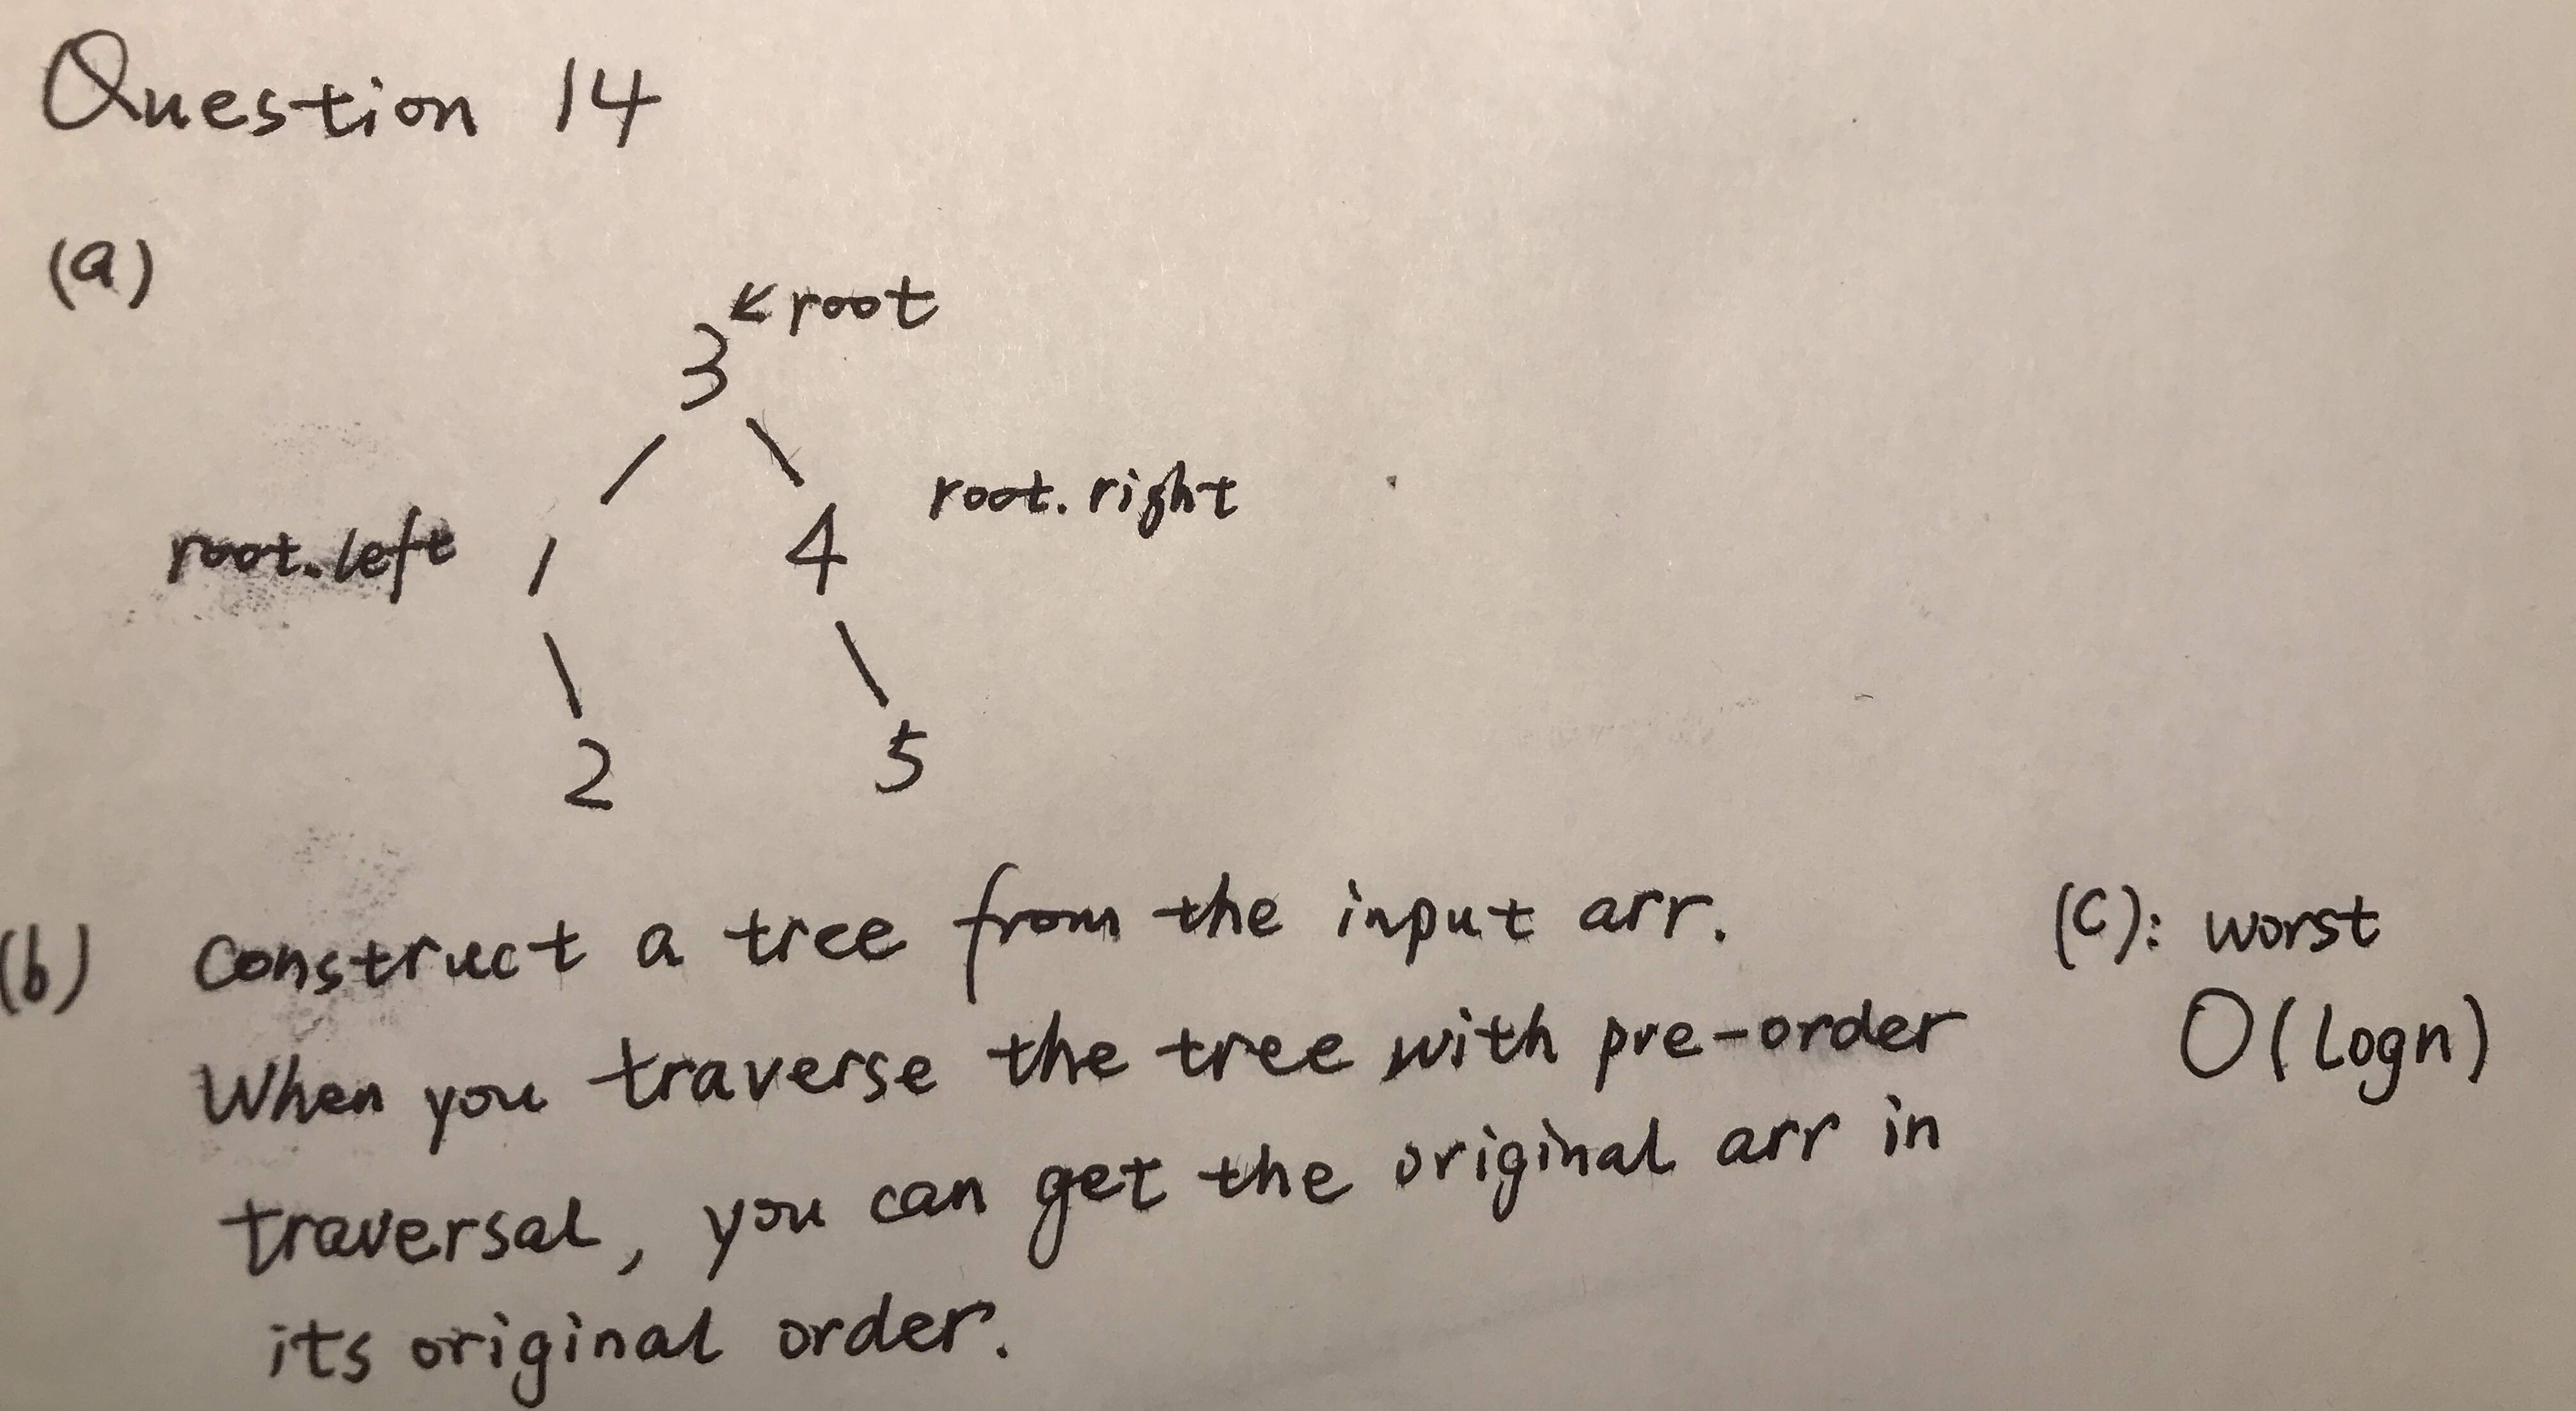 Question 14
(a)
← root
3
root.left 1 4 root.right
2 5
(b) Construct a tree from the input arr.
When you traverse the tree with pre-order
traversal, you can get the original arr in
its original order.
(C): worst
O(logn)